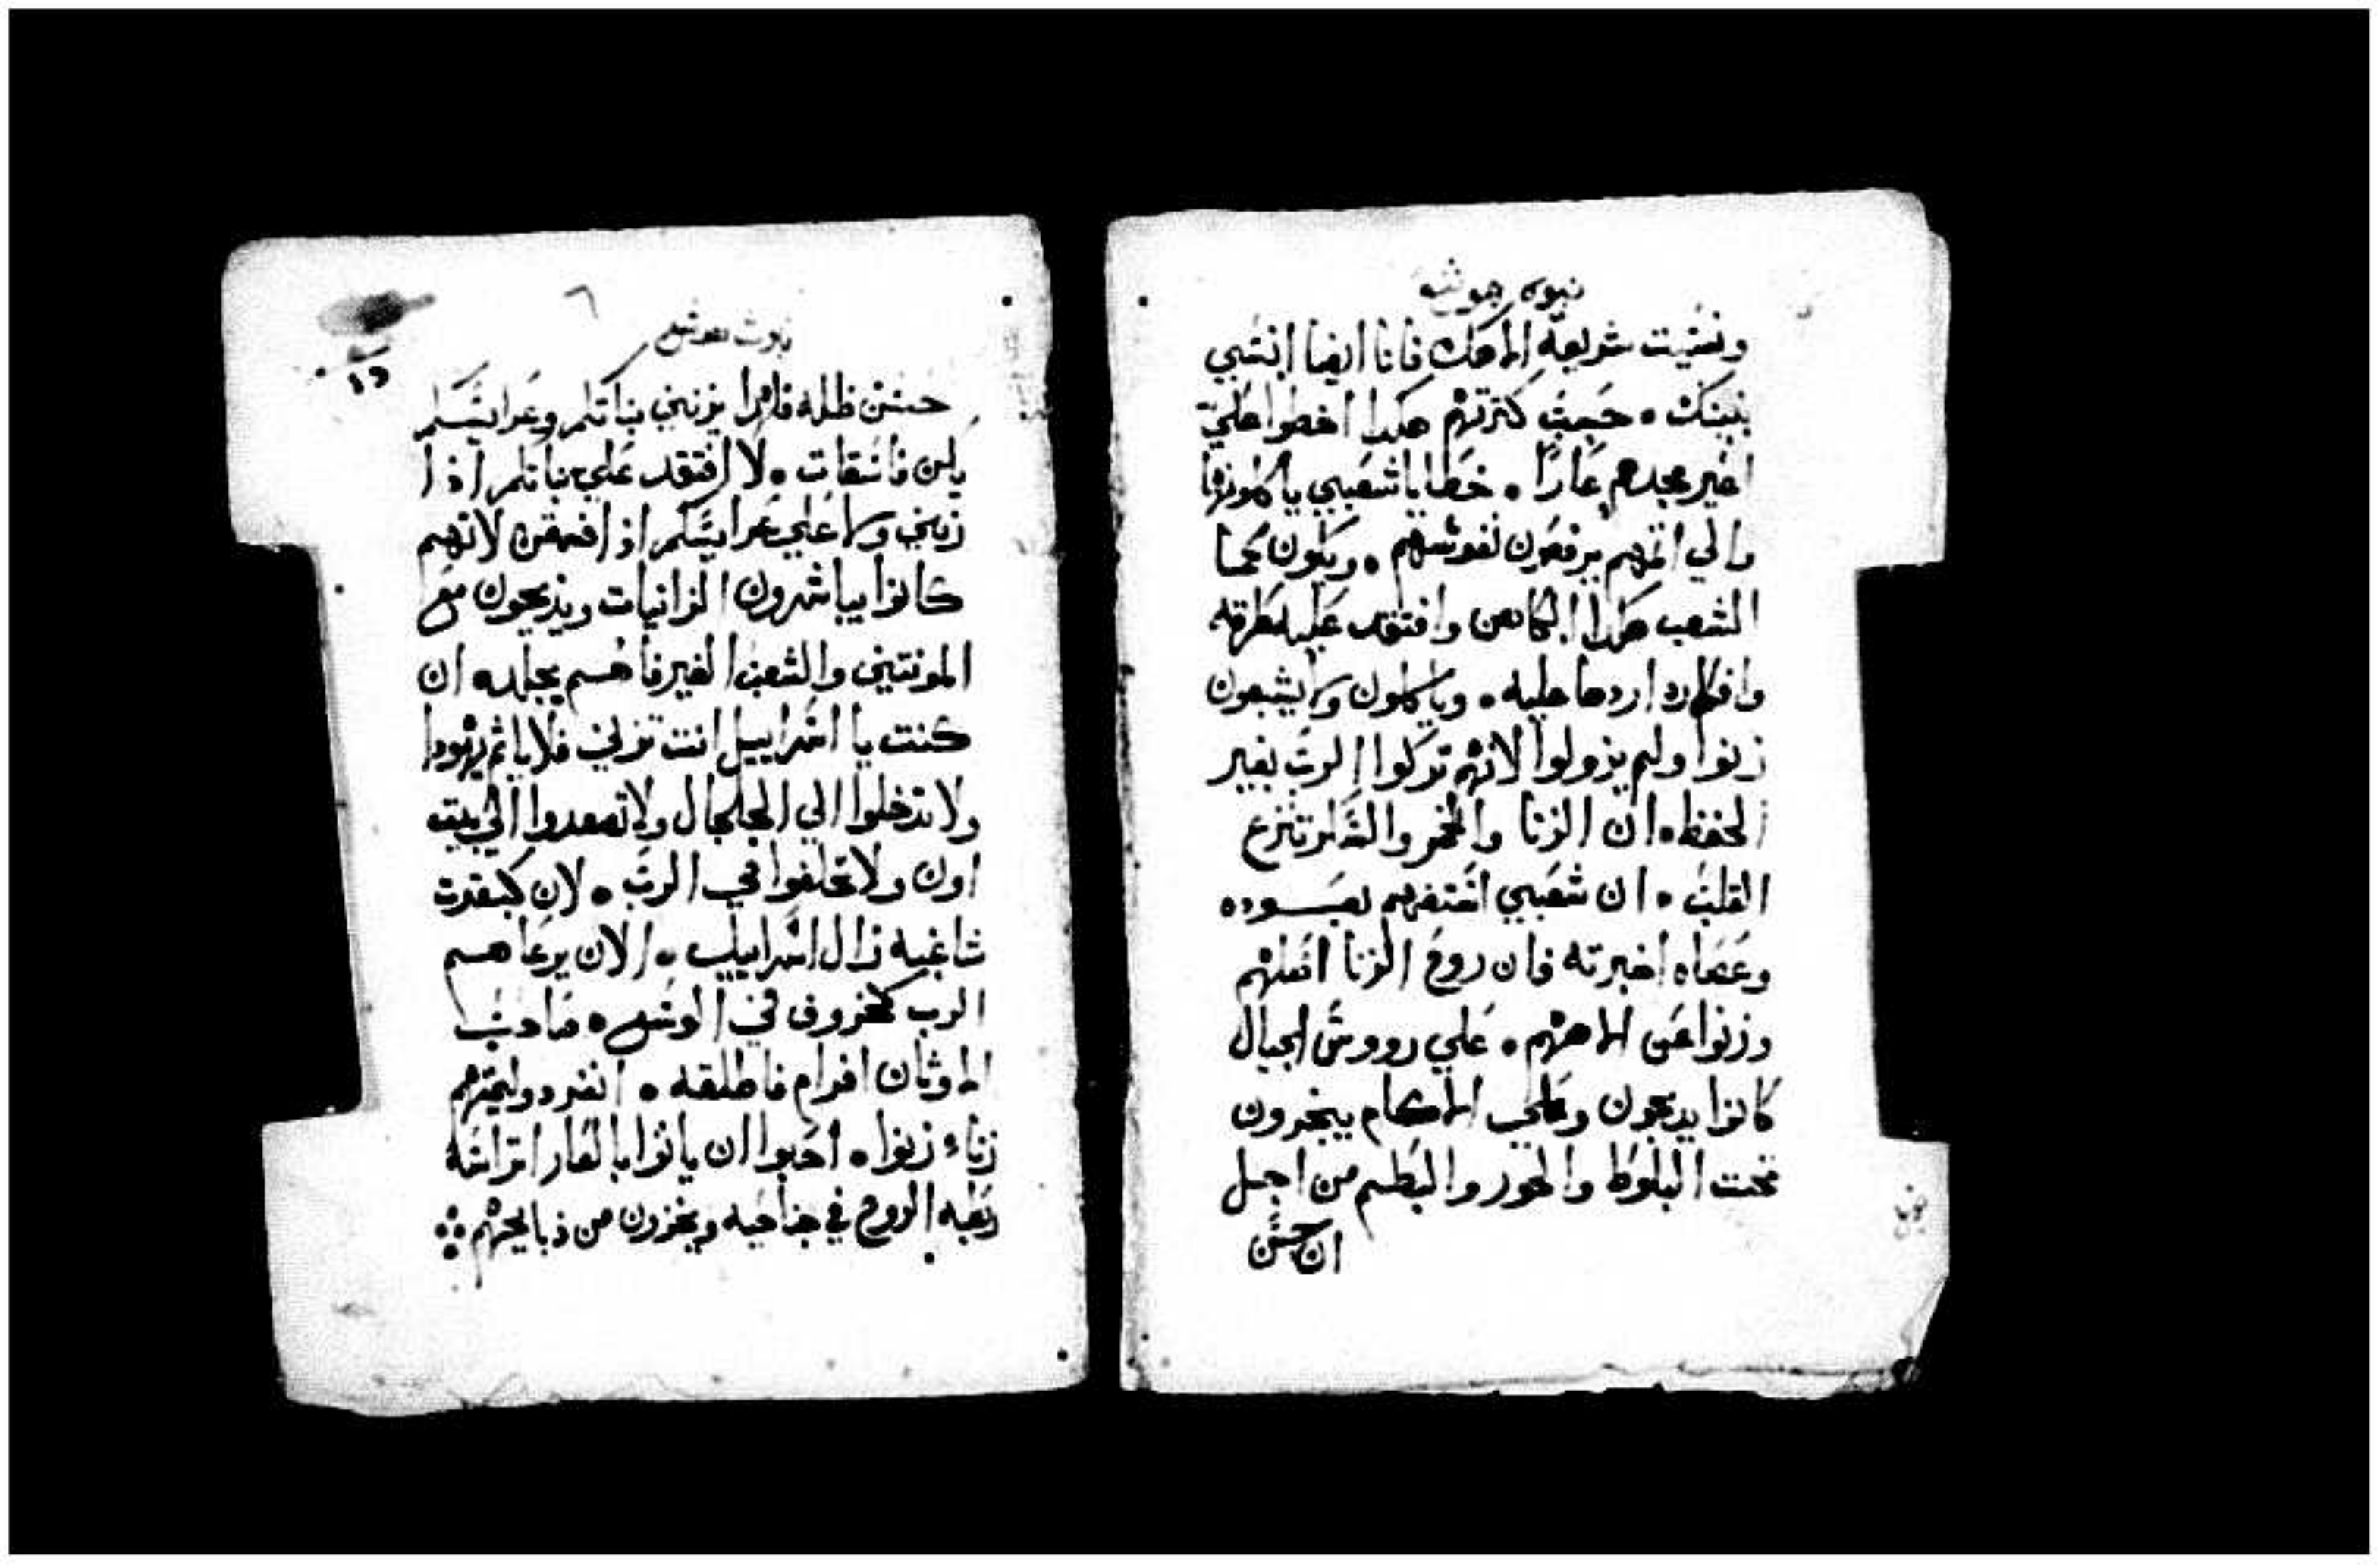 نبوه هوشع
ونسيت شريعة الاهك فانا ايضا انسي
بنيك • حسب كثرتهم هكدا اخطوا علي
اغير مجدهم عارا • خطايا شعبي ياكلونها
والي اثمهم يرفعون نفوسهم • ويكون كما
الشعب هكدا الكاهن وافتقد عليه طرقه
وافكاره اردها عليه • وياكلون ولا يشبعون
زنوا ولم يزولوا لانهم تركوا الرب بغير
الحفظ • ان الزنا والخمر والسكر تنزع
القلب • ان شعبي استفهم بعسوده
وعصاه اخبرته فان روح الزنا اضلهم
وزنوا عن الاههم • علي رووس الجبال
كانوا يدبحون وعلي الاكام يبخرون
تحت البلوط والحور والبطم من اجل
ان حسن
٦
نبوت هوشع
١٥
حسن ظله فلهدا يزنين بناتكم وعرايسكم
يكن فاسقات • لا افتقد علي بناتكم اذا
زنين ولا علي عرايسكم اذا فسقن لانهم
كانوا يباشرون الزانيات ويذبحون مع
المونتين والشعب الغير فاهم يجلده ان
كنت يا اسراييل انت تزني فلا ياثم يهودا
ولا تدخلوا الي الجلجال ولا تصعدوا الي بيت
اون ولا تحلفوا في الرب • لان كبقرت
شاغبه زال اسراييل • الان يرعاهم
الرب كخروف في الوسع • صاحب
الاوثان افرام فاطلقه • انفرد وليمتهم
زناء زنوا • احبوا ان ياتوا بالعار اتراسه
ربطه الروح في جناحيه ويخزون من ذبايحهم